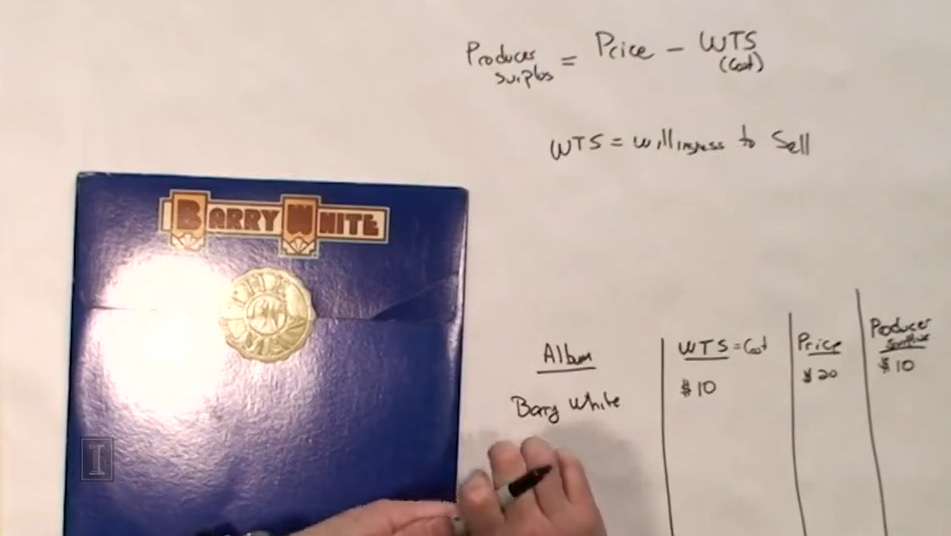 Producer surplus = Price - WTS
(Cost)
WTS = Willingness to Sell
BARRY WHITE
THE MAN
BW
Album
WTS = Cost
Price
Producer
Surplus
Barry White
$10
$20
$10
I